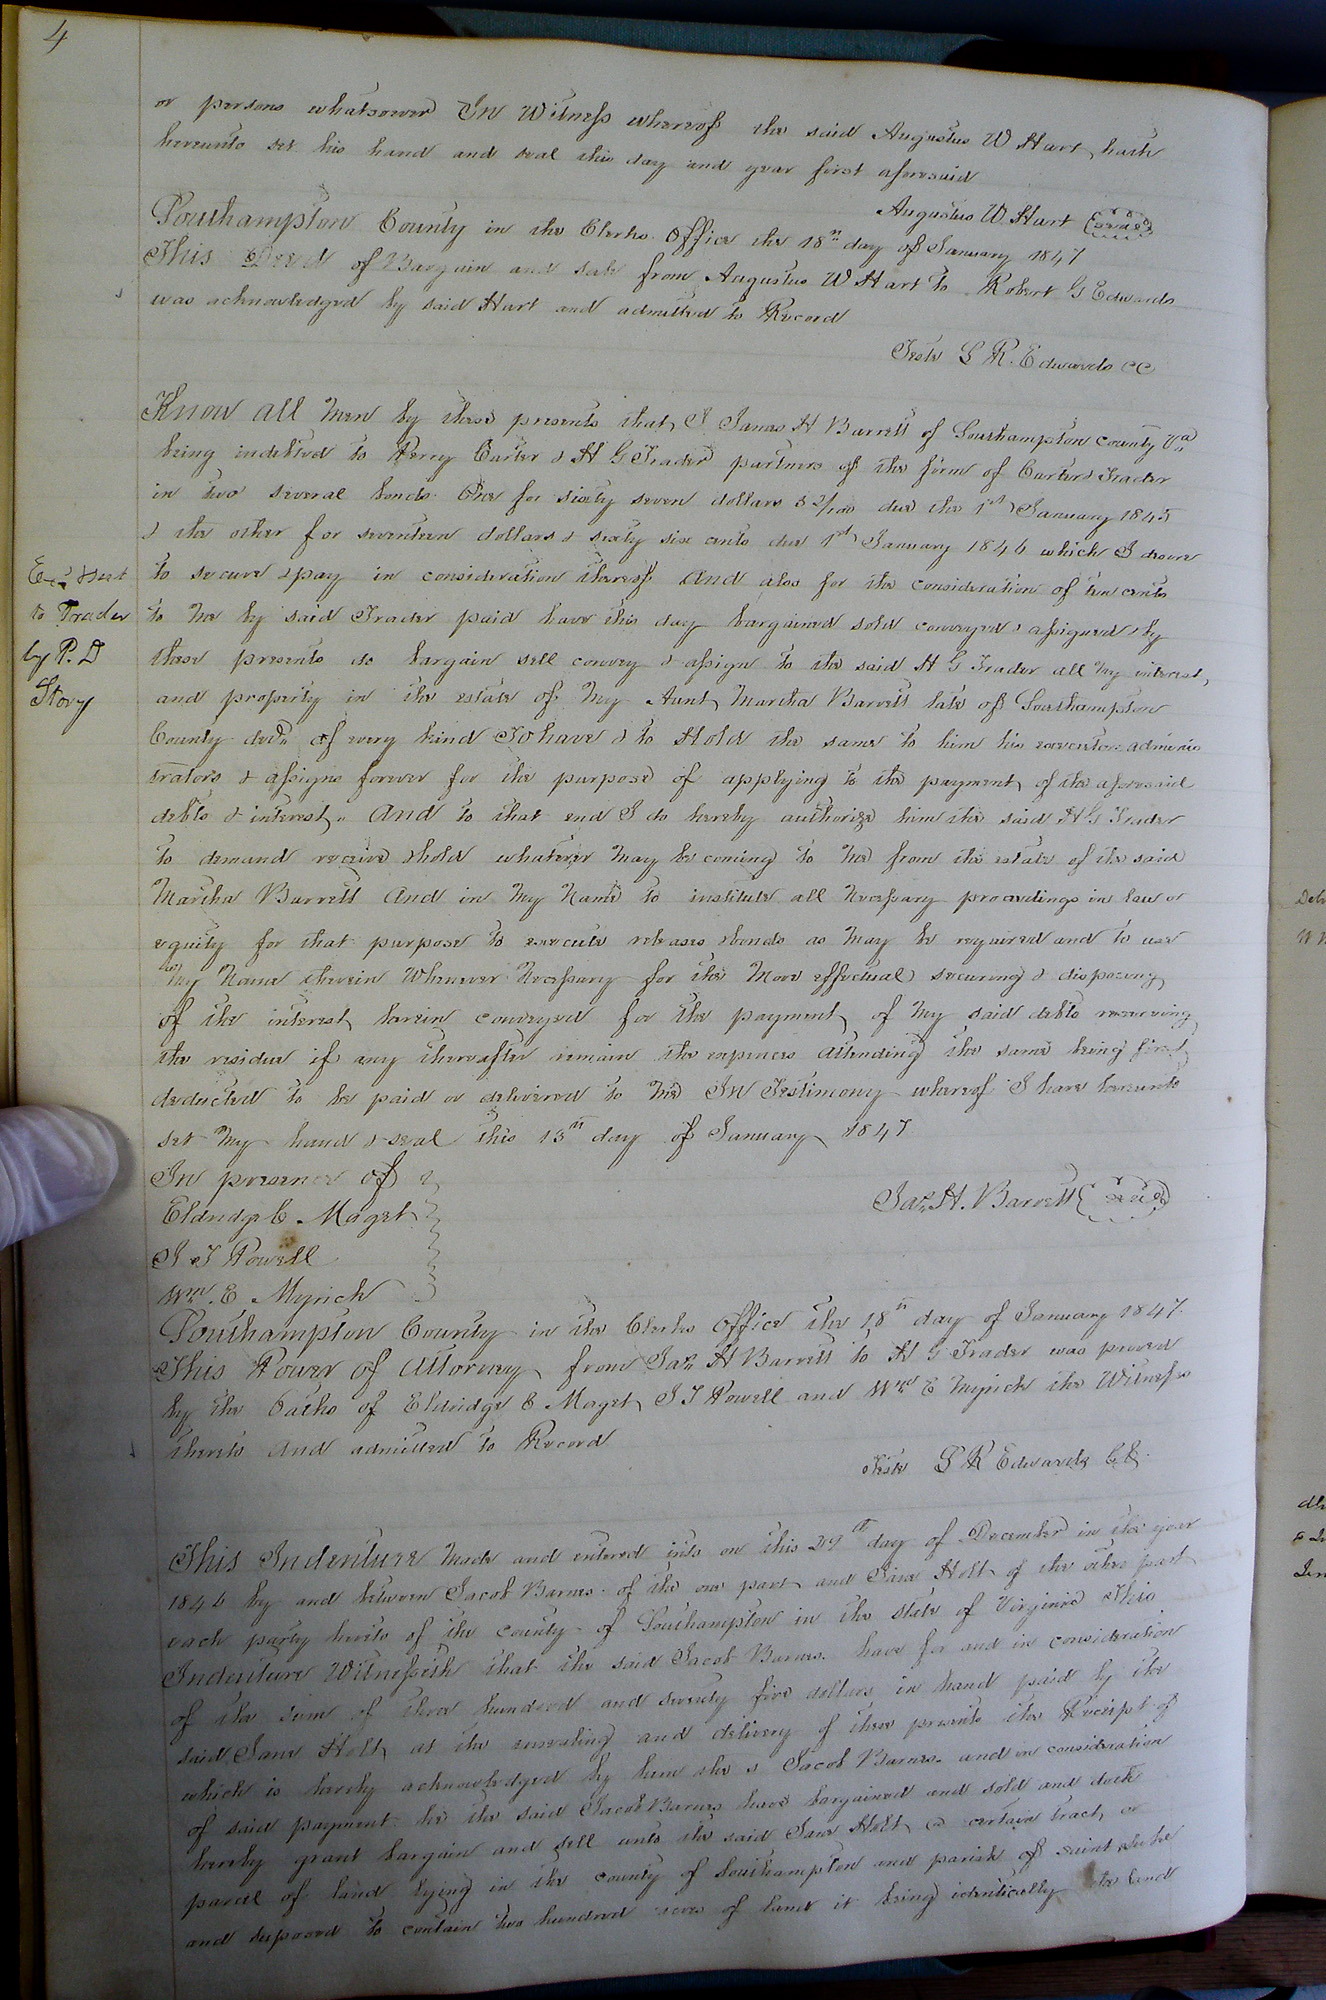 4
or persons whatsoever In Witness whereof the said Augustus W Hart hath
hereunto set his hand and seal this day and year first aforesaid
Augustus W Hart (seal)
Southampton County in the Clerks Office the 18th day of January 1847
This Deed of Bargain and sale from Augustus W Hart to Robert G Edwards
was acknowledged by said Hart and admitted to Record
Teste L R. Edwards CC
Know all Men by these presents that I James H Barrett of Southampton County Va
being indebted to Perry Carter & H G Trader partners of the firm of Carter & Trader
in two several bonds One for sixty seven dollars 52/100 due the 1st January 1845
& the other for seventeen dollars & sixty six cents due 1st January 1846 which I desire
to secure & pay in consideration thereof And also for the consideration of ten cents
to me by said Trader paid have this day bargained sold conveyed & assigned & by
these presents do bargain sell convey & assign to the said H G Trader all my interest,
and property in the estate of my Aunt Martha Barrett late of Southampton
County decd of every kind To have & to Hold the same to him his executors adminis
trators & assigns forever for the purpose of applying to the payment of the aforesaid
debts & interest. And to that end I do hereby authorize him the said H G Trader
to demand receive & hold whatever may be coming to me from the estate of the said
Martha Barrett And in my Name to institute all Necessary proceedings in law or
equity for that purpose to execute releases & bonds as may be required and to use
my Name therein Whenever Necessary for the More effectual securing & disposing
of the interest herein conveyed for the payment of my said debts reserving
the residue if any thereafter remain the expences attending the same being first
deducted to be paid or delivered to me In Testimony whereof I have hereunto
set my hand & seal this 13th day of January 1847
In presence of
Jas H. Barrett (seal)
Eldridge E. Maget
J T Powell
Wm. E Myrick
Southampton County in the Clerks Office the 18th day of January 1847
This Power of Attorney from Jas H Barrett to H G Trader was proved
by the Oaths of Eldridge E Maget, J T Powell and Wm E Myrick the Witnesses
thereto And admitted to Record
Teste L R Edwards C C
Exd & sent
to Trader
by P. D
Story
This Indenture Made and entered into on this 29th day of December in the year
1846 by and between Jacob Barnes of the one part and Jane Holt of the other part
each party hereto of the County of Southampton in the State of Virginia This
Indenture Witnesseth that the said Jacob Barnes have for and in consideration
of the sum of three hundred and seventy five dollars in hand paid by the
said Jane Holt, at the ensealing and delivery of these presents the Receipt of
which is hereby acknowledged by him the s Jacob Barnes and in consideration
of said payment he the said Jacob Barnes have bargained and sold and doth
hereby grant bargain and sell unto the said Jane Holt a certain tract or
parcel of land lying in the county of Southampton and parish of Saint Luke
and supposed to contain two hundred acres of land it being identically the land